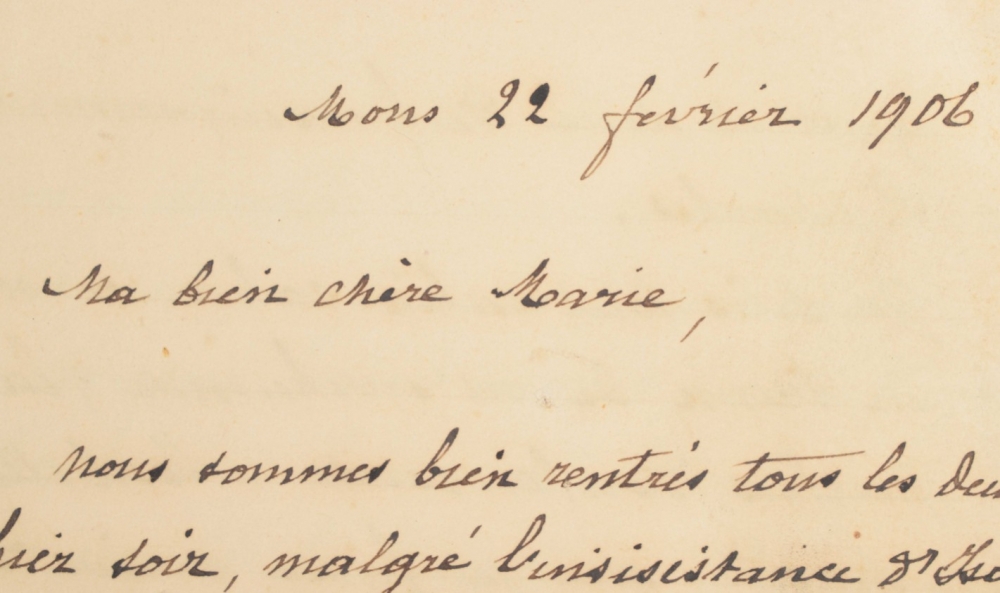 Mons 22 février 1906
Ma bien chère Marie,
nous sommes bien rentrés tous les
hier soir, malgré l'insisistance